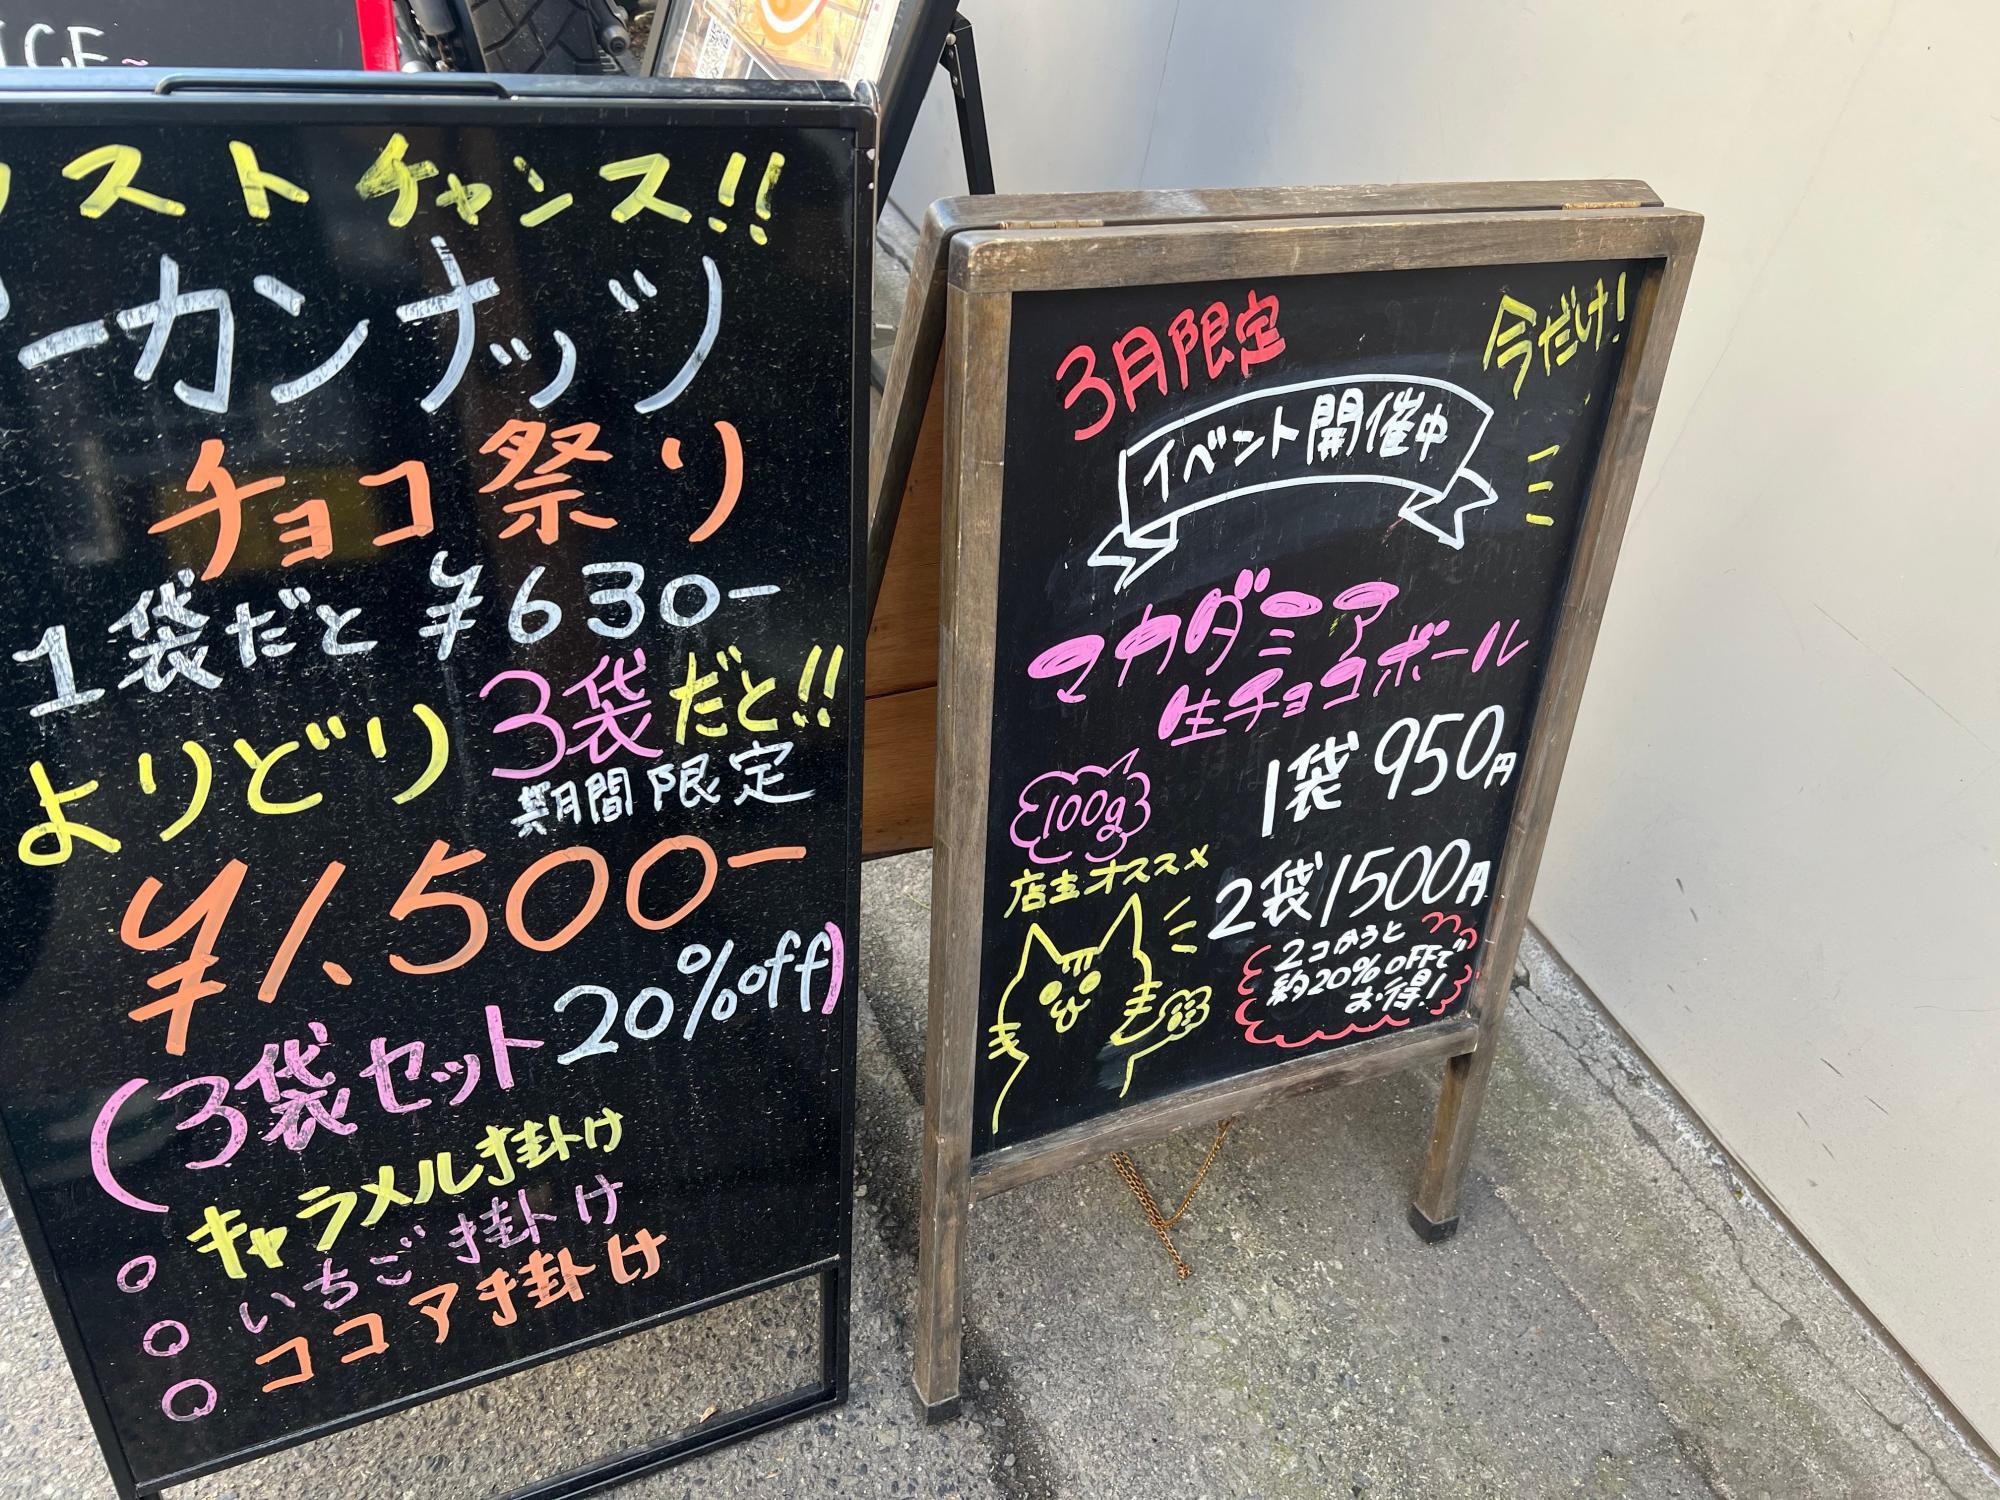 ICE~
スト チャンス!!
ーカンナッツ
チョコ祭り
1袋だと ¥630-
よりどり 3袋だと!!
期間限定
¥1,500-
(3袋セット20%off)
○ キャラメル掛け
○ いちご掛け
○ ココア掛け
3月限定
今だけ!
イベント開催中
マカダミア
生チョコボール
100g
1袋 950円
店主オススメ
2袋1500円
2コかうと
約20%OFFで
お得!